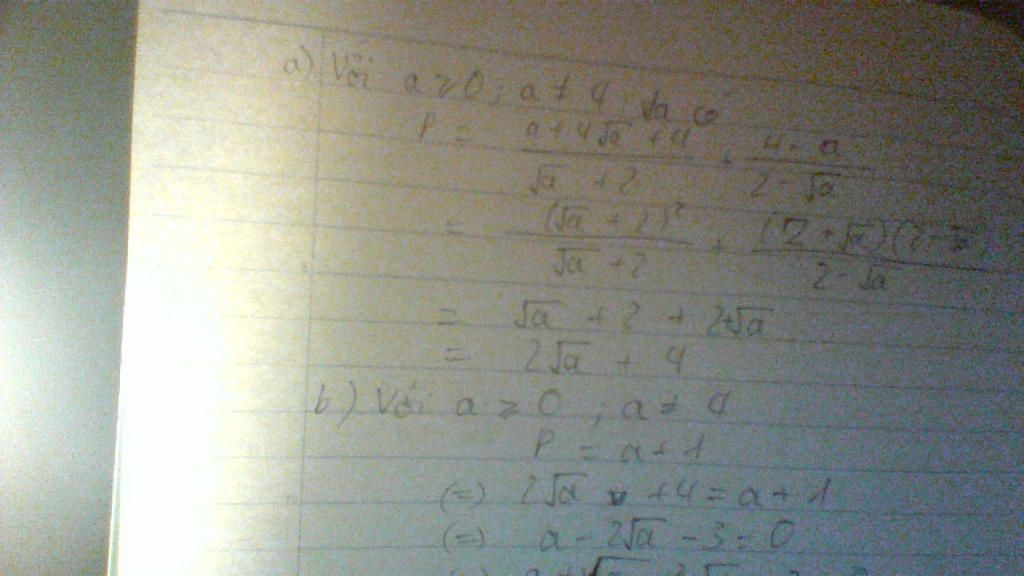 a) Với a ≥ 0; a ≠ 4 ta có
P = (a + 4√a + 4)/(√a + 2) + (4 - a)/(2 - √a)
= (√a + 2)²/(√a + 2) + (2 + √a)(2 - √a)/(2 - √a)
= √a + 2 + 2+√a
= 2√a + 4
b) Với a ≥ 0; a ≠ 4
P = a + 1
(=) 2√a + 4 = a + 1
(=) a - 2√a - 3 = 0